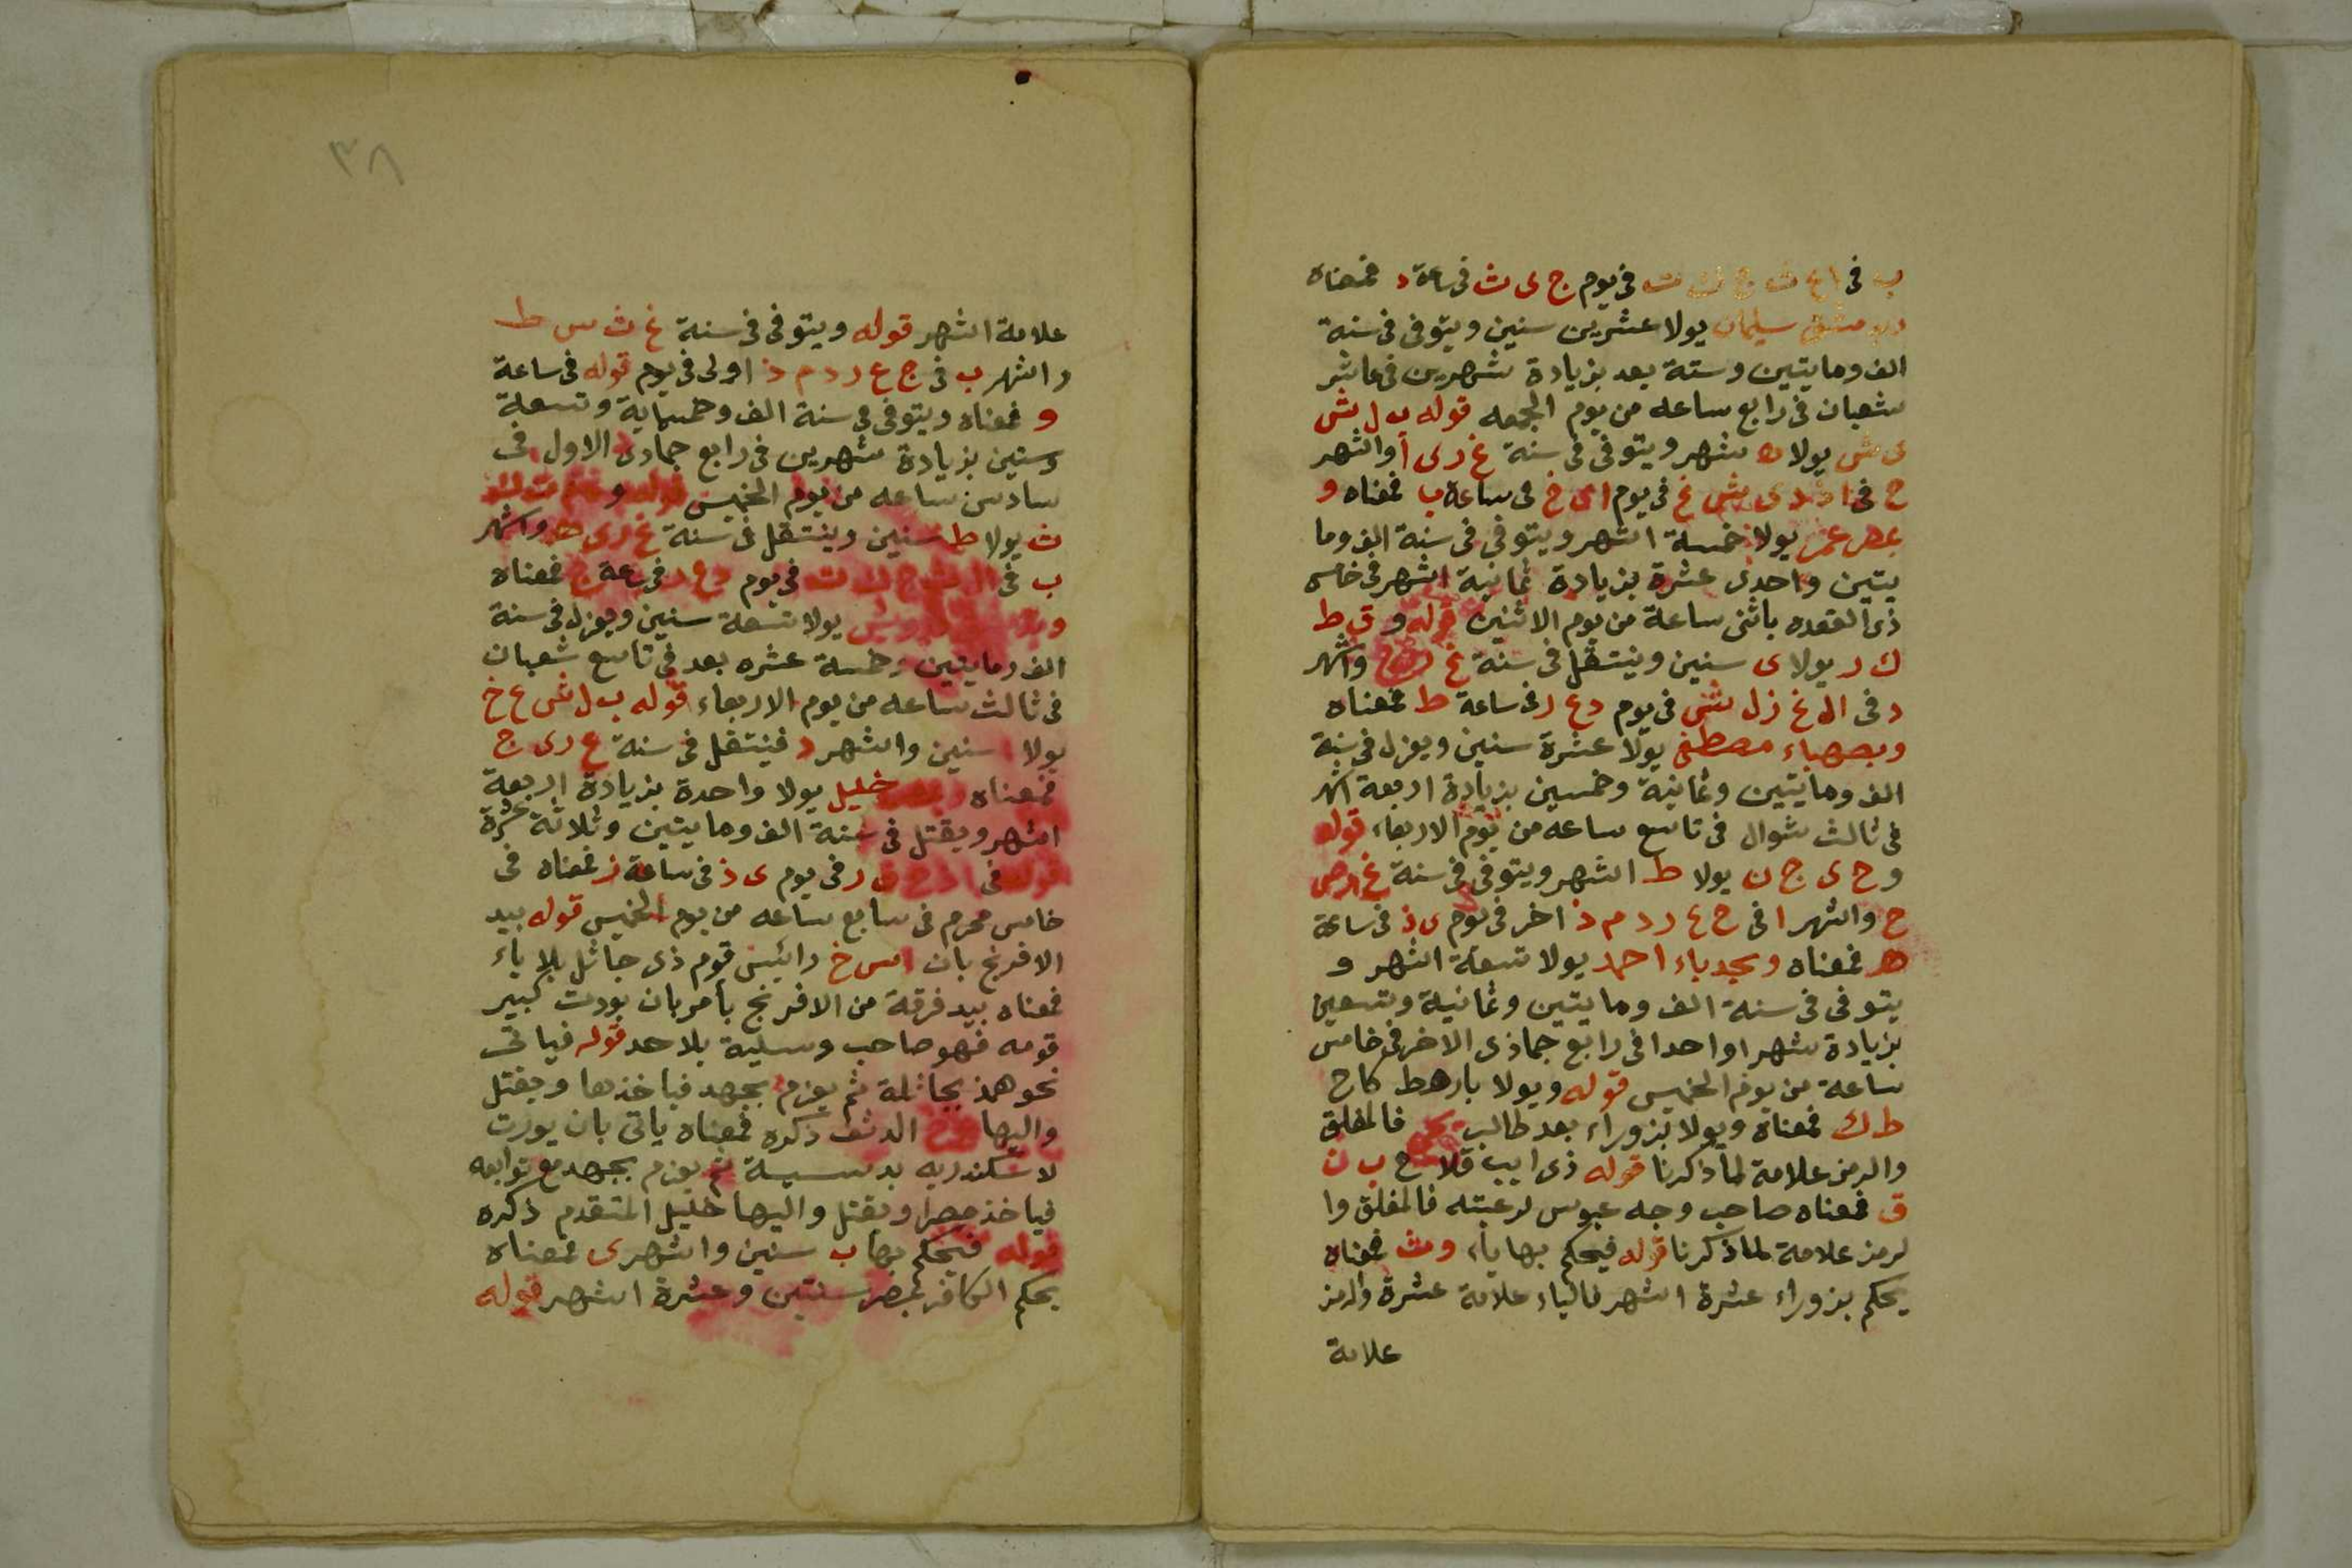 ب في ج ي ث في ساعة د فمعناه
سليمان يولا عشرين سنين ويتوفى في سنة
الف ومايتين وستة بعد بزيادة شهرين في عاشر
شعبان في رابع ساعه من يوم الجمعه قوله ب ل ش
ى ش يولا ه شهر ويتوفى في سنة غ ر ى أ والشهر
ح في في يوم ا ى خ في ساعة ب فمعناه و
عمر يولا خمسة اشهر ويتوفى في سنة الف وما
يتين واحدى عشرة بزيادة ثمانية اشهر في خامس
ذى القعده باثنى ساعة من يوم الاثنين قوله و ق ط
ك ر يولا ى سنين وينتقل في سنة غ واشهر
د في ال غ ز ل ش في يوم د ع ر في ساعة ط فمعناه
وبصهباء مصطفى يولا عشرة سنين ويعزل في سنة
الف ومايتين وثمانية وخمسين بزيادة اربعة اشهر
في ثالث شوال في تاسع ساعه من يوم الاربعاء قوله
و ح ى ج ن يولا ط اشهر ويتوفى في سنة غ ر ص
ح والشهر ا في ج ع ر د م ذ اخر في يوم ى ذ في ساعة
ه فمعناه وبجدباء احمد يولا تسعة اشهر و
يتوفى في سنة الف ومايتين وثمانية وتسعين
بزيادة شهرا واحدا في رابع جماذى الاخر في خامس
ساعة من يوم الخميس قوله ويولا بارهط كاح
ط ك فمعناه ويولا بزوراء بعد طالب فالمغلق
والرمز علامة لما ذكرنا قوله ذى ايب قلا ح ب ن
ق فمعناه صاحب وجه عبوس لرعيته فالمغلق وا
لرمز علامة لما ذكرنا قوله فيحكم بها ياء ومث فمعناه
يحكم بزوراء عشرة اشهر فالياء علامة عشرة والرمز
علامة
٣٨
علامة الشهر قوله ويتوفى في سنة غ ث س ط
والشهر ب في ج ع ر د م ذ اولى في يوم قوله في ساعة
و فمعناه ويتوفى في سنة الف وخمسماية وتسعة
وستين بزيادة شهرين في رابع جمادى الاول في
سادس ساعه من يوم الخميس قوله و
ث يولا ط سنين وينتقل في سنة غ ر ى ه واشهر
ب في في يوم د ع ر في ساعة ج فمعناه
يولا تسعة سنين ويعزل في سنة
الف ومايتين وخمسة عشره بعد في تاسع شعبان
في ثالث ساعه من يوم الاربعاء قوله ب ل ش ع خ
يولا ا سنين واشهر د فينتقل في سنة غ ر ى ج
فمعناه خليل يولا واحدة بزيادة اربعة
اشهر ويقتل في سنة الف ومايتين وثلاثة عشرة
قوله في ر في يوم ى ذ في ساعة ز فمعناه في
خامس محرم في سابع ساعه من يوم الخميس قوله بيد
الافرنج بان اس خ رائيس قوم ذى جاثل بلا باء
فمعناه بيد فرقة من الافرنج بأمر بان بودت كبير
قومه فهو صاحب وسيلة بلا حد قوله فياتى
نحو همذ بجاثلة ثم يعزم بجهد فياخذها ويقتل
واليها ذكره فمعناه ياتى بان بورت
لاسكندريه بدسيسة ثم يعزم بجهد مع توابعه
فياخذ مصرا ويقتل واليها خليل المتقدم ذكره
قوله فيحكم بها ب سنين واشهر ى فمعناه
يحكم الكافر لمصر سنتين وعشرة اشهر قوله